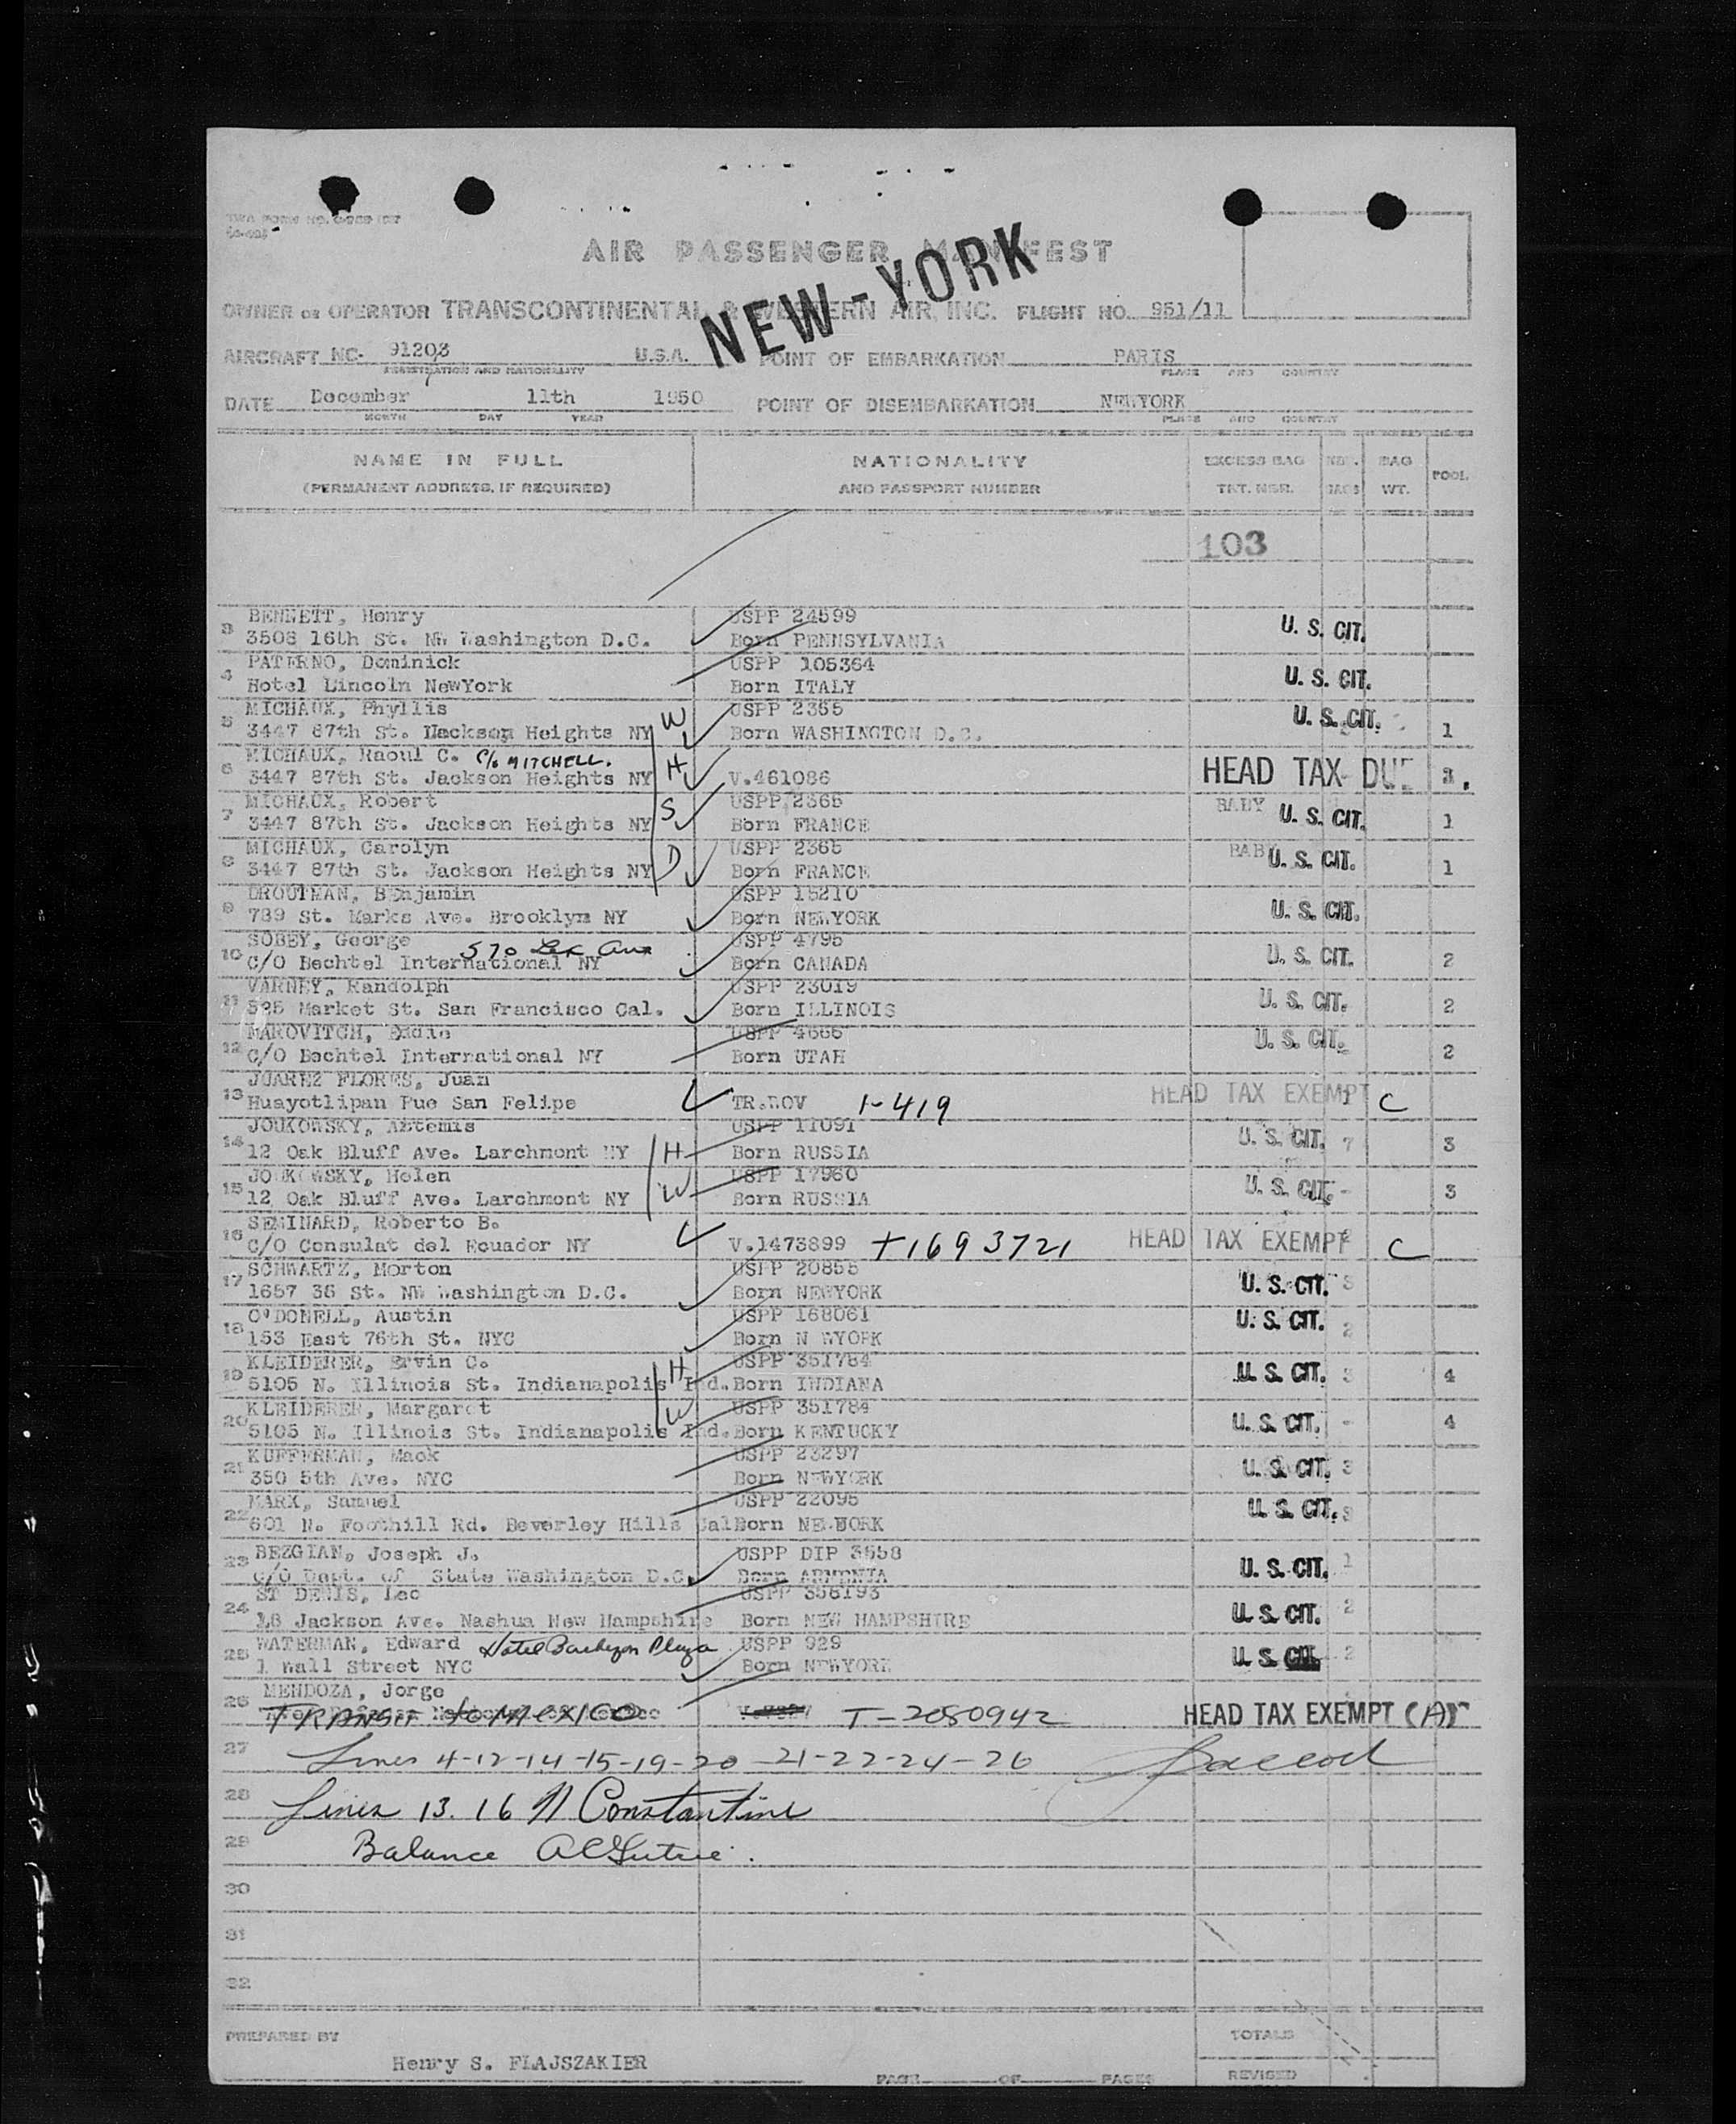 AIR PASSENGER MANIFEST
NEW-YORK
OWNER OR OPERATOR TRANSCONTINENTAL & WESTERN AIR, INC. FLIGHT NO. 951/11
AIRCRAFT NC- 91203 U.S.A. POINT OF EMBARKATION PARIS
REGISTRATION AND NATIONALITY PLACE AND COUNTRY
DATE December 11th 1950 POINT OF DISEMBARKATION NEWYORK
MONTH DAY YEAR PLACE AND COUNTRY
NAME IN FULL NATIONALITY EXCESS BAG NBR. BAG POOL
(PERMANENT ADDRESS, IF REQUIRED) AND PASSPORT NUMBER TKT. NBR. BAGS WT.
103
BENNETT, Henry USPP 24599
3 3508 16th St. NW Washington D.C. Born PENNSYLVANIA U. S. CIT.
PATERNO, Dominick USPP 105364
4 Hotel Lincoln NewYork Born ITALY U. S. CIT.
MICHAUX, Phyllis W USPP 2365 U. S. CIT.
5 3447 87th St. Jackson Heights NY Born WASHINGTON D.C. 1
MICHAUX, Raoul C. C/o MITCHELL. H
6 3447 87th St. Jackson Heights NY V.461086 HEAD TAX DUE
MICHAUX, Robert S USPP 2365 BABY U. S. CIT.
7 3447 87th St. Jackson Heights NY Born FRANCE 1
MICHAUX, Carolyn D USPP 2365 BABY U. S. CIT.
8 3447 87th St. Jackson Heights NY Born FRANCE 1
DROUTMAN, BEnjamin USPP 15210
9 789 St. Marks Ave. Brooklyn NY Born NEWYORK U. S. CIT.
SOBEY, George 570 Lex Ave USPP 4795
10 C/O Bechtel International NY Born CANADA U. S. CIT. 2
VARNEY, Randolph USPP 23019
11 525 Market St. San Francisco Cal. Born ILLINOIS U. S. CIT. 2
MAKOVITCH, Eddie USPP 4665 U. S. CIT.
12 C/O Bechtel International NY Born UTAH 2
JUAREZ FLORES, Juan
13 Huayotlipan Pue San Felipe TR.ROV 1-419 HEAD TAX EXEMPT C
JOUKOWSKY, Artemis USPP 11091
14 12 Oak Bluff Ave. Larchmont NY H Born RUSSIA U. S. CIT. 7 3
JOUKOWSKY, Helen USPP 17960
15 12 Oak Bluff Ave. Larchmont NY W Born RUSSIA U. S. CIT. - 3
SEMINARD, Roberto B.
16 C/O Consulat del Ecuador NY V.1473899 +1693721 HEAD TAX EXEMPT C
SCHWARTZ, Morton USPP 20855
17 1657 36 St. NW Washington D.C. Born NEWYORK U. S. CIT. 3
O'DONELL, Austin USPP 168061
18 153 East 76th St. NYC Born N WYORK U. S. CIT. 2
KLEIDERER, Ervin C. H USPP 351784
19 5105 N. Illinois St. Indianapolis Ind. Born INDIANA U. S. CIT. 3 4
KLEIDERER, Margaret W USPP 351784
20 5105 N. Illinois St. Indianapolis Ind. Born KENTUCKY U. S. CIT. - 4
KUFFERMAN, Mack USPP 23297
21 350 5th Ave. NYC Born NEWYORK U. S. CIT. 3
MARX, Samuel USPP 22095
22 601 N. Foothill Rd. Beverley Hills Cal Born NEWYORK U. S. CIT. 3
23 BEZGIAN, Joseph J. USPP DIP 3558
C/O Dept. of State Washington D.C. Born ARMENIA U. S. CIT. 1
ST DENIS, Leo USPP 358193
24 18 Jackson Ave. Nashua New Hampshire Born NEW HAMPSHIRE U. S. CIT. 2
WATERMAN, Edward Hotel Barbizon Plaza USPP 929
25 1 Wall Street NYC Born NEWYORK U. S. CIT. 2
MENDOZA, Jorge
26 TRANSIT to MEXICO T-2080942 HEAD TAX EXEMPT (A)
27 Lines 4-12-14-15-19-20-21-22-24-26
28 Lines 13. 16 N Constantine
29 Balance
30
31
32
PREPARED BY TOTALS
Henry S. FLAJSZAKIER
PAGE OF PAGES REVISED